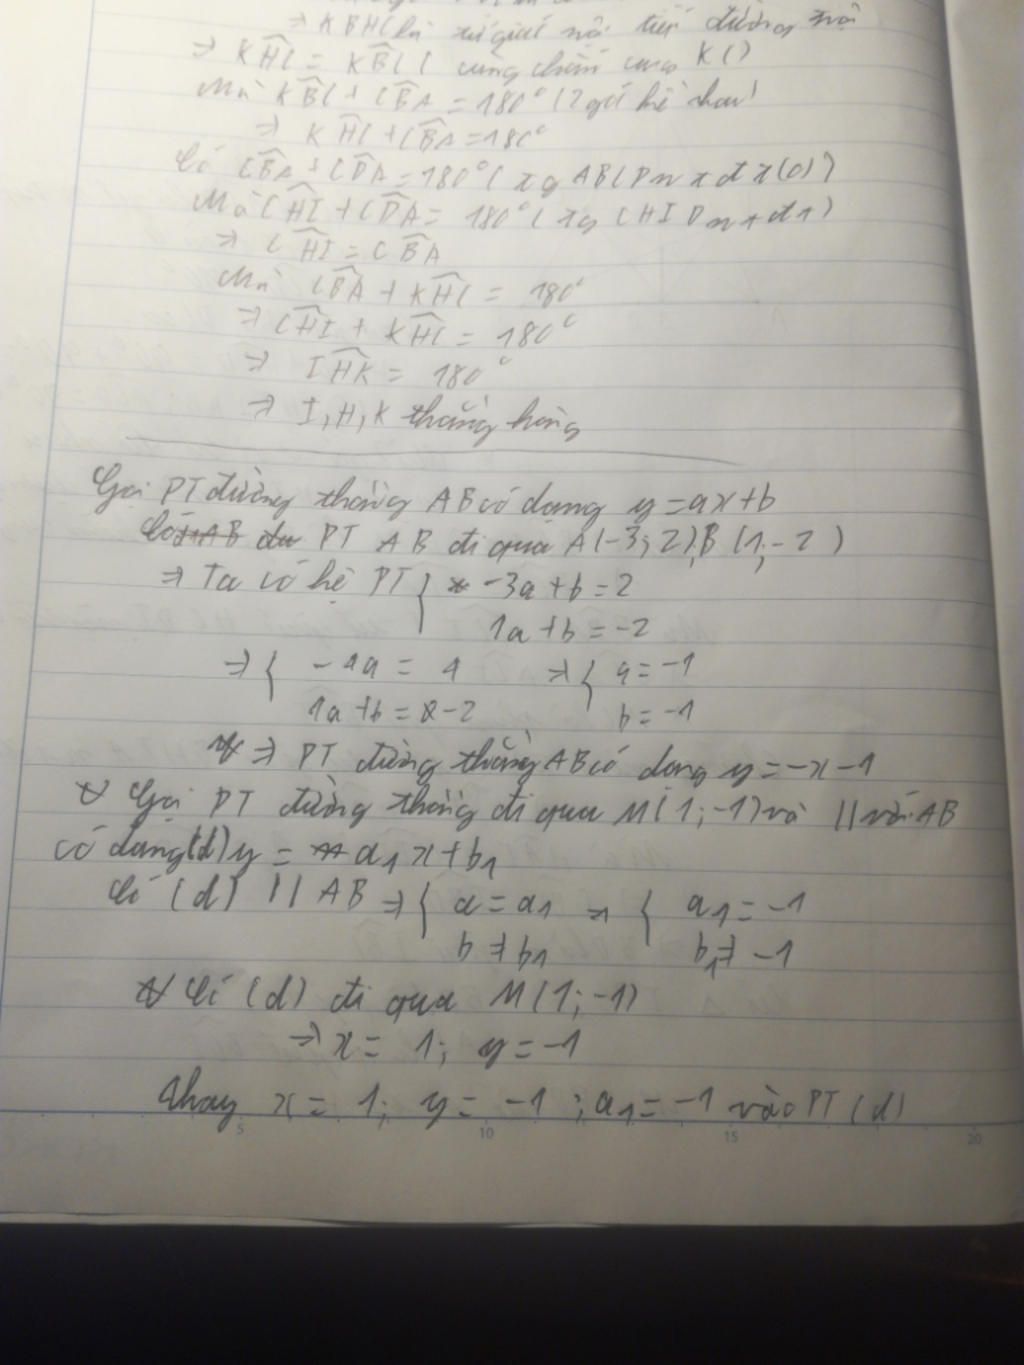 ⇒ KBHC là tứ giác nội tiếp đường
⇒ KĤC = KB̂C ( cùng chắn cung KC)
Mà KB̂C + CB̂A = 180° (2 góc kề nhau)
⇒ KĤC + CB̂A = 180°
Có CB̂A + CD̂A = 180° ( tg ABCD n x đ x (O))
Mà CĤI + CD̂A = 180° ( tg CHID n t đ t)
⇒ CĤI = CB̂A
Mà CB̂A + KĤC = 180°
⇒ CĤI + KĤC = 180°
⇒ IĤK = 180°
⇒ I, H, K thẳng hàng
Gọi PT đường thẳng AB có dạng y = ax + b
Có PT AB đi qua A(-3; 2), B(1; -2)
⇒ Ta có hệ PT { -3a + b = 2
1a + b = -2
⇒ { -4a = 4 ⇒ { a = -1
1a + b = -2 b = -1
⇒ PT đường thẳng AB có dạng y = -x - 1
Gọi PT đường thẳng đi qua M(1; -1) và // với AB
có dạng (d) y = a₁x + b₁
Có (d) // AB ⇒ { a = a₁ ⇒ { a₁ = -1
b ≠ b₁ b₁ ≠ -1
Có (d) đi qua M(1; -1)
⇒ x = 1; y = -1
Thay x = 1; y = -1 ; a₁ = -1 vào PT (d)
5 10 15 20